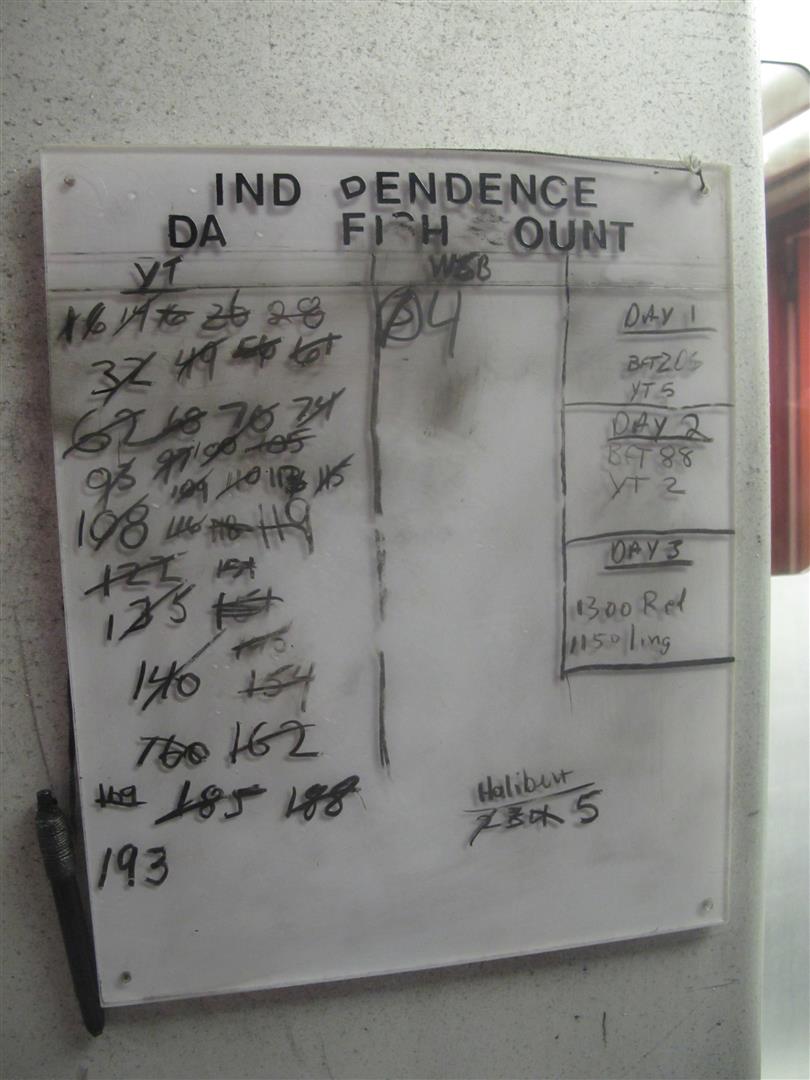 IND PENDENCE
DA FISH OUNT
YT
WSB
16 19 26 28
4
DAY 1
32 49 61
BFT 205
YT 5
62 68 70 74
DAY 2
93 97 100 105
BFT 88
109 110 113 115
YT 2
108 116 118 119
122 151
DAY 3
135
1300 Red
1150 ling
140 154
160 162
Halibut
185 188
2 3 4 5
193